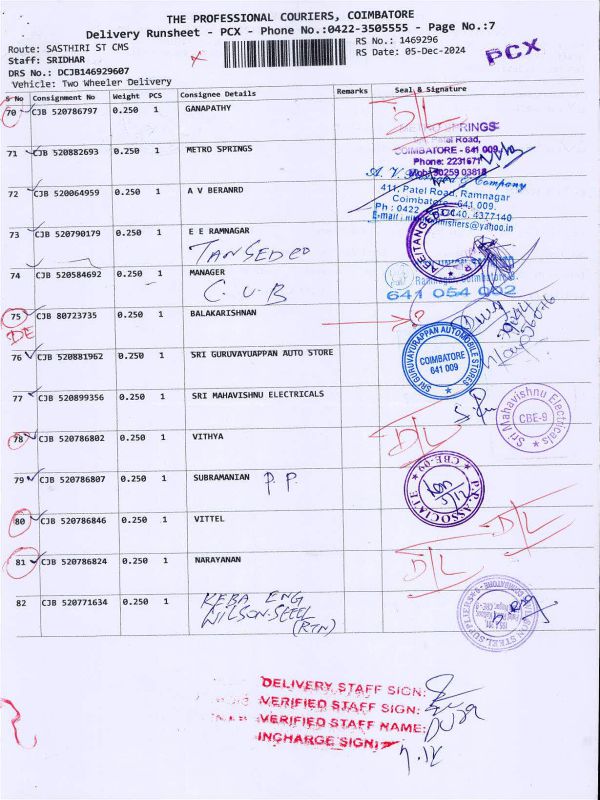 THE PROFESSIONAL COURIERS, COIMBATORE
Delivery Runsheet - PCX - Phone No.:0422-3505555 - Page No.:7
Route: SASTHIRI ST CMS
RS No.: 1469296
Staff: SRIDHAR
RS Date: 05-Dec-2024
PCX
DRS No.: DCJB146929607
Vehicle: Two Wheeler Delivery
S No Consignment No Weight PCS Consignee Details Remarks Seal & Signature
70 CJB 520786797 0.250 1 GANAPATHY D/L
SPRINGS
Patel Road,
COIMBATORE - 641 009
Phone: 2231671
71 CJB 520882693 0.250 1 METRO SPRINGS
72 CJB 520064959 0.250 1 A V BERANRD
& Company
411, Patel Road, Ramnagar
Coimbatore - 641 009.
73 CJB 520790179 0.250 1 E E RAMNAGAR
TANGEDCO
74 CJB 520584692 0.250 1 MANAGER
C.U.B
641 054 002
75 CJB 80723735 0.250 1 BALAKARISHNAN
DE
76 CJB 520881962 0.250 1 SRI GURUVAYUAPPAN AUTO STORE
SRI GURUVAYURAPPAN AUTOMOBILE STORES
COIMBATORE
641 009
77 CJB 520899356 0.250 1 SRI MAHAVISHNU ELECTRICALS
Sri Mahavishnu Electricals
CBE-9
78 CJB 520786802 0.250 1 VITHYA D/L
79 CJB 520786807 0.250 1 SUBRAMANIAN P.P.
P.P. ASSOCIATE
CBE-09
80 CJB 520786846 0.250 1 VITTEL D/L
81 CJB 520786824 0.250 1 NARAYANAN D/L
82 CJB 520771634 0.250 1 KEBA ENG
WILSON-STEEL
(RTN)
DELIVERY STAFF SIGN:
VERIFIED STAFF SIGN:
VERIFIED STAFF NAME:
INCHARGE SIGN: